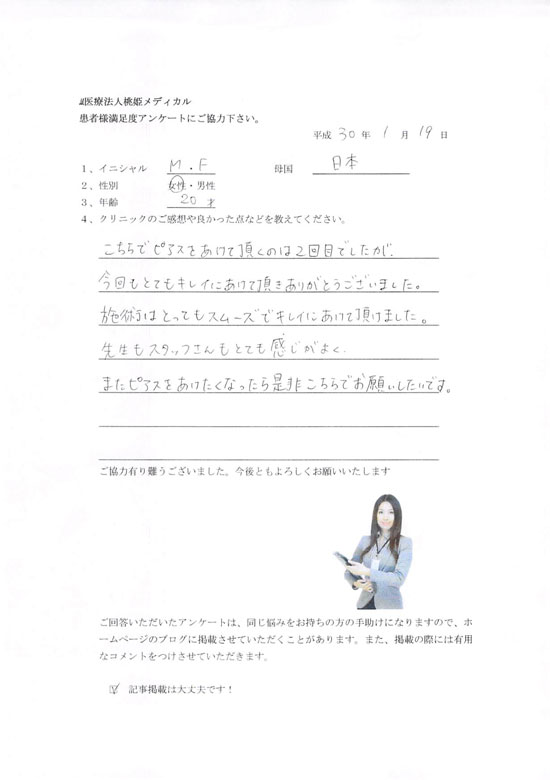 医療法人桃姫メディカル
患者様満足度アンケートにご協力下さい。
平成 30 年 1 月 19 日
1、イニシャル M.F 母国 日本
2、性別 女性・男性
3、年齢 20 才
4、クリニックのご感想や良かった点などを教えてください。
こちらでピアスをあけて頂くのは2回目でしたが、
今回もとてもキレイにあけて頂きありがとうございました。
施術はとってもスムーズでキレイにあけて頂けました。
先生もスタッフさんもとても感じがよく、
またピアスをあけたくなったら是非こちらでお願いしたいです。
ご協力有り難うございました。今後ともよろしくお願いいたします
ご回答いただいたアンケートは、同じ悩みをお持ちの方の手助けになりますので、ホ
ームページのブログに掲載させていただくことがあります。また、掲載の際には有用
なコメントをつけさせていただきます。
☑ 記事掲載は大丈夫です！